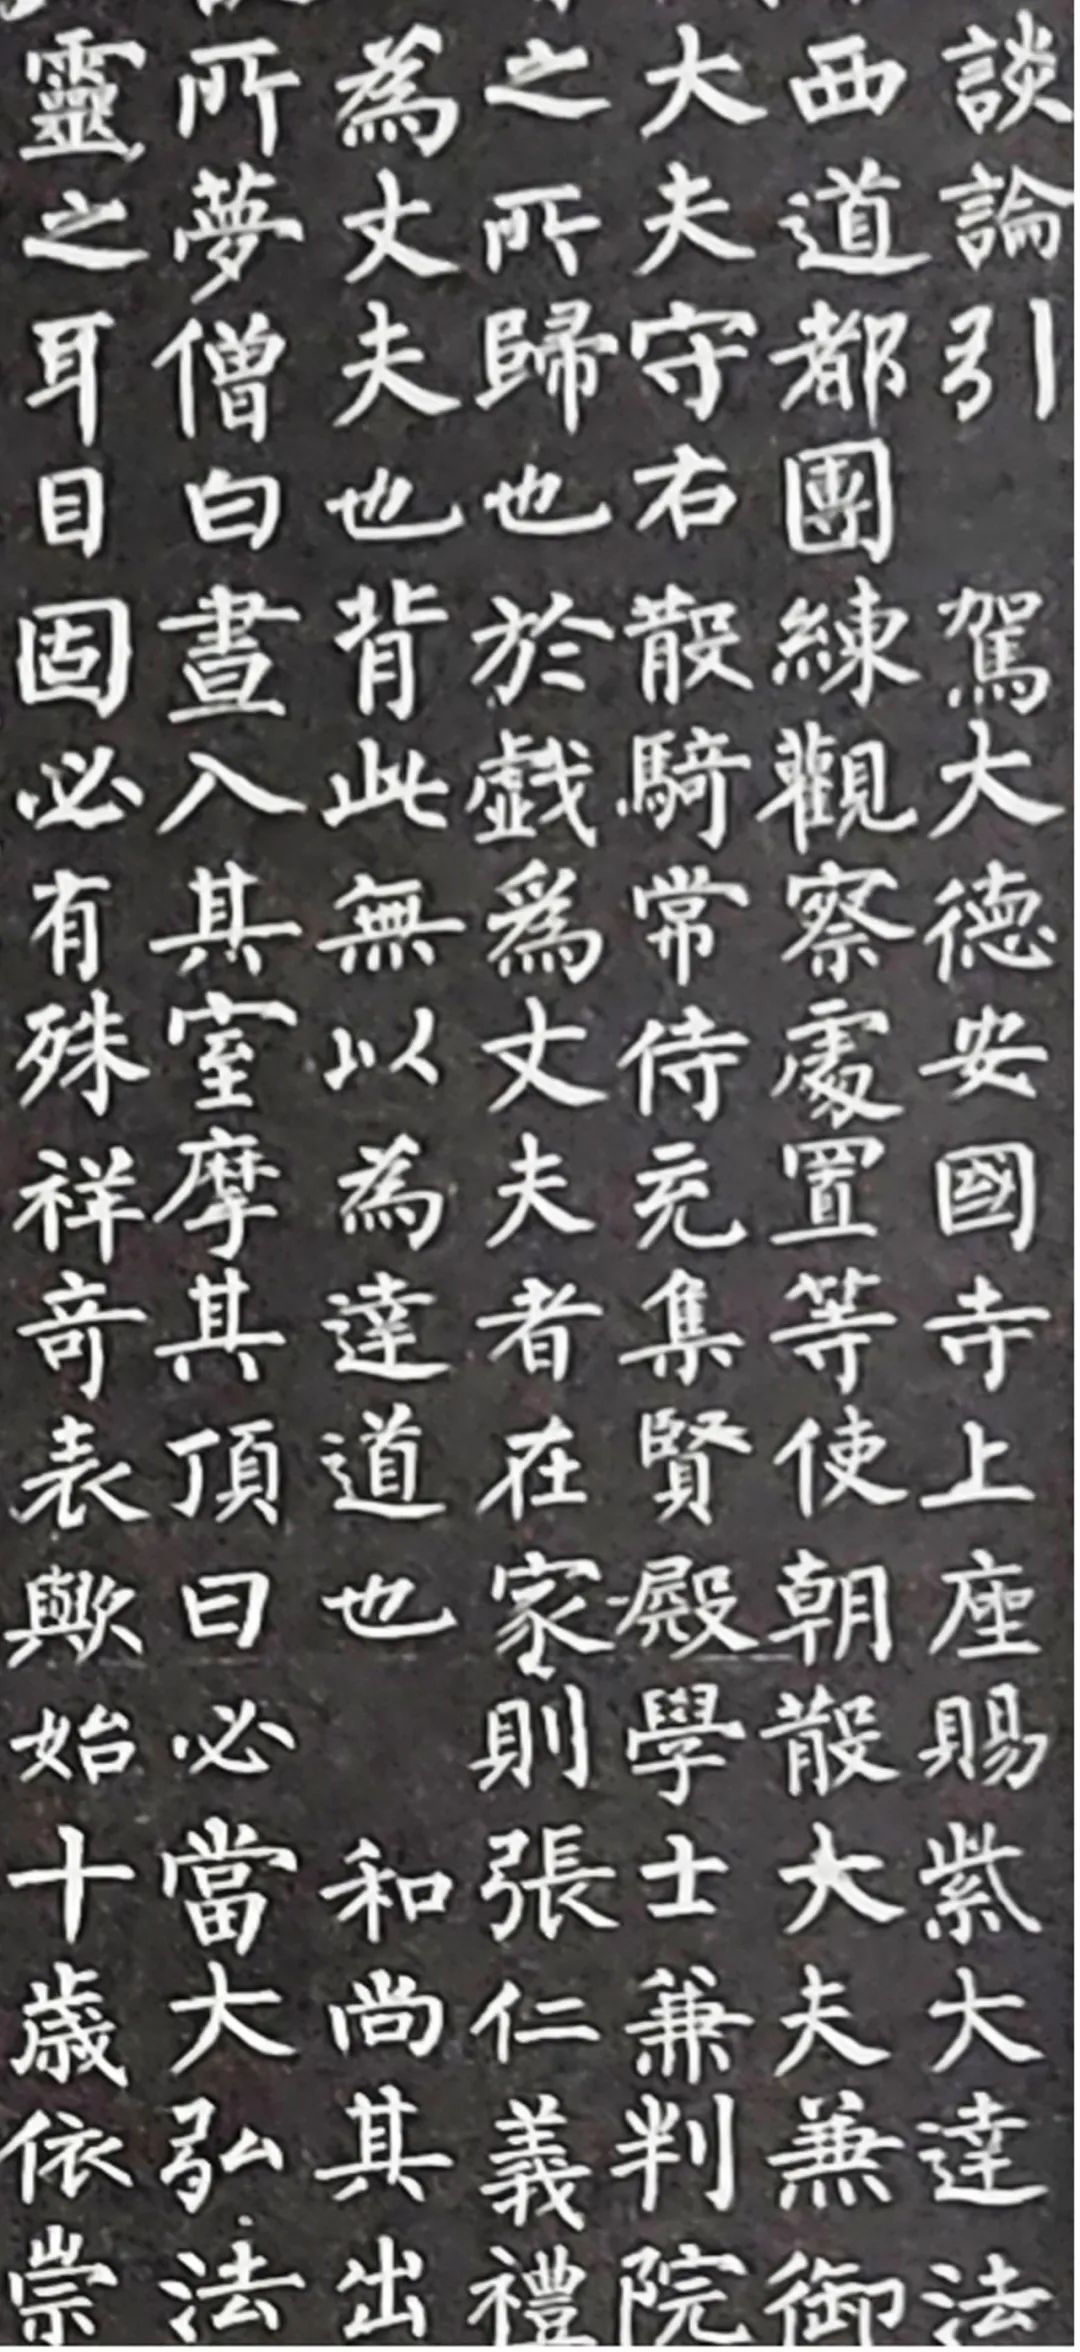 談論引駕大德安國寺上座賜紫大達法
西道都團練觀察處置等使朝散大夫兼御
大夫守右散騎常侍充集賢殿學士兼判院
之所歸也於戲為丈夫者在家則張仁義禮
為丈夫也背此無以為達道也和尚其出
所夢僧白晝入其室摩其頂曰必當大弘法
靈之耳目固必有殊祥奇表歟始十歲依崇